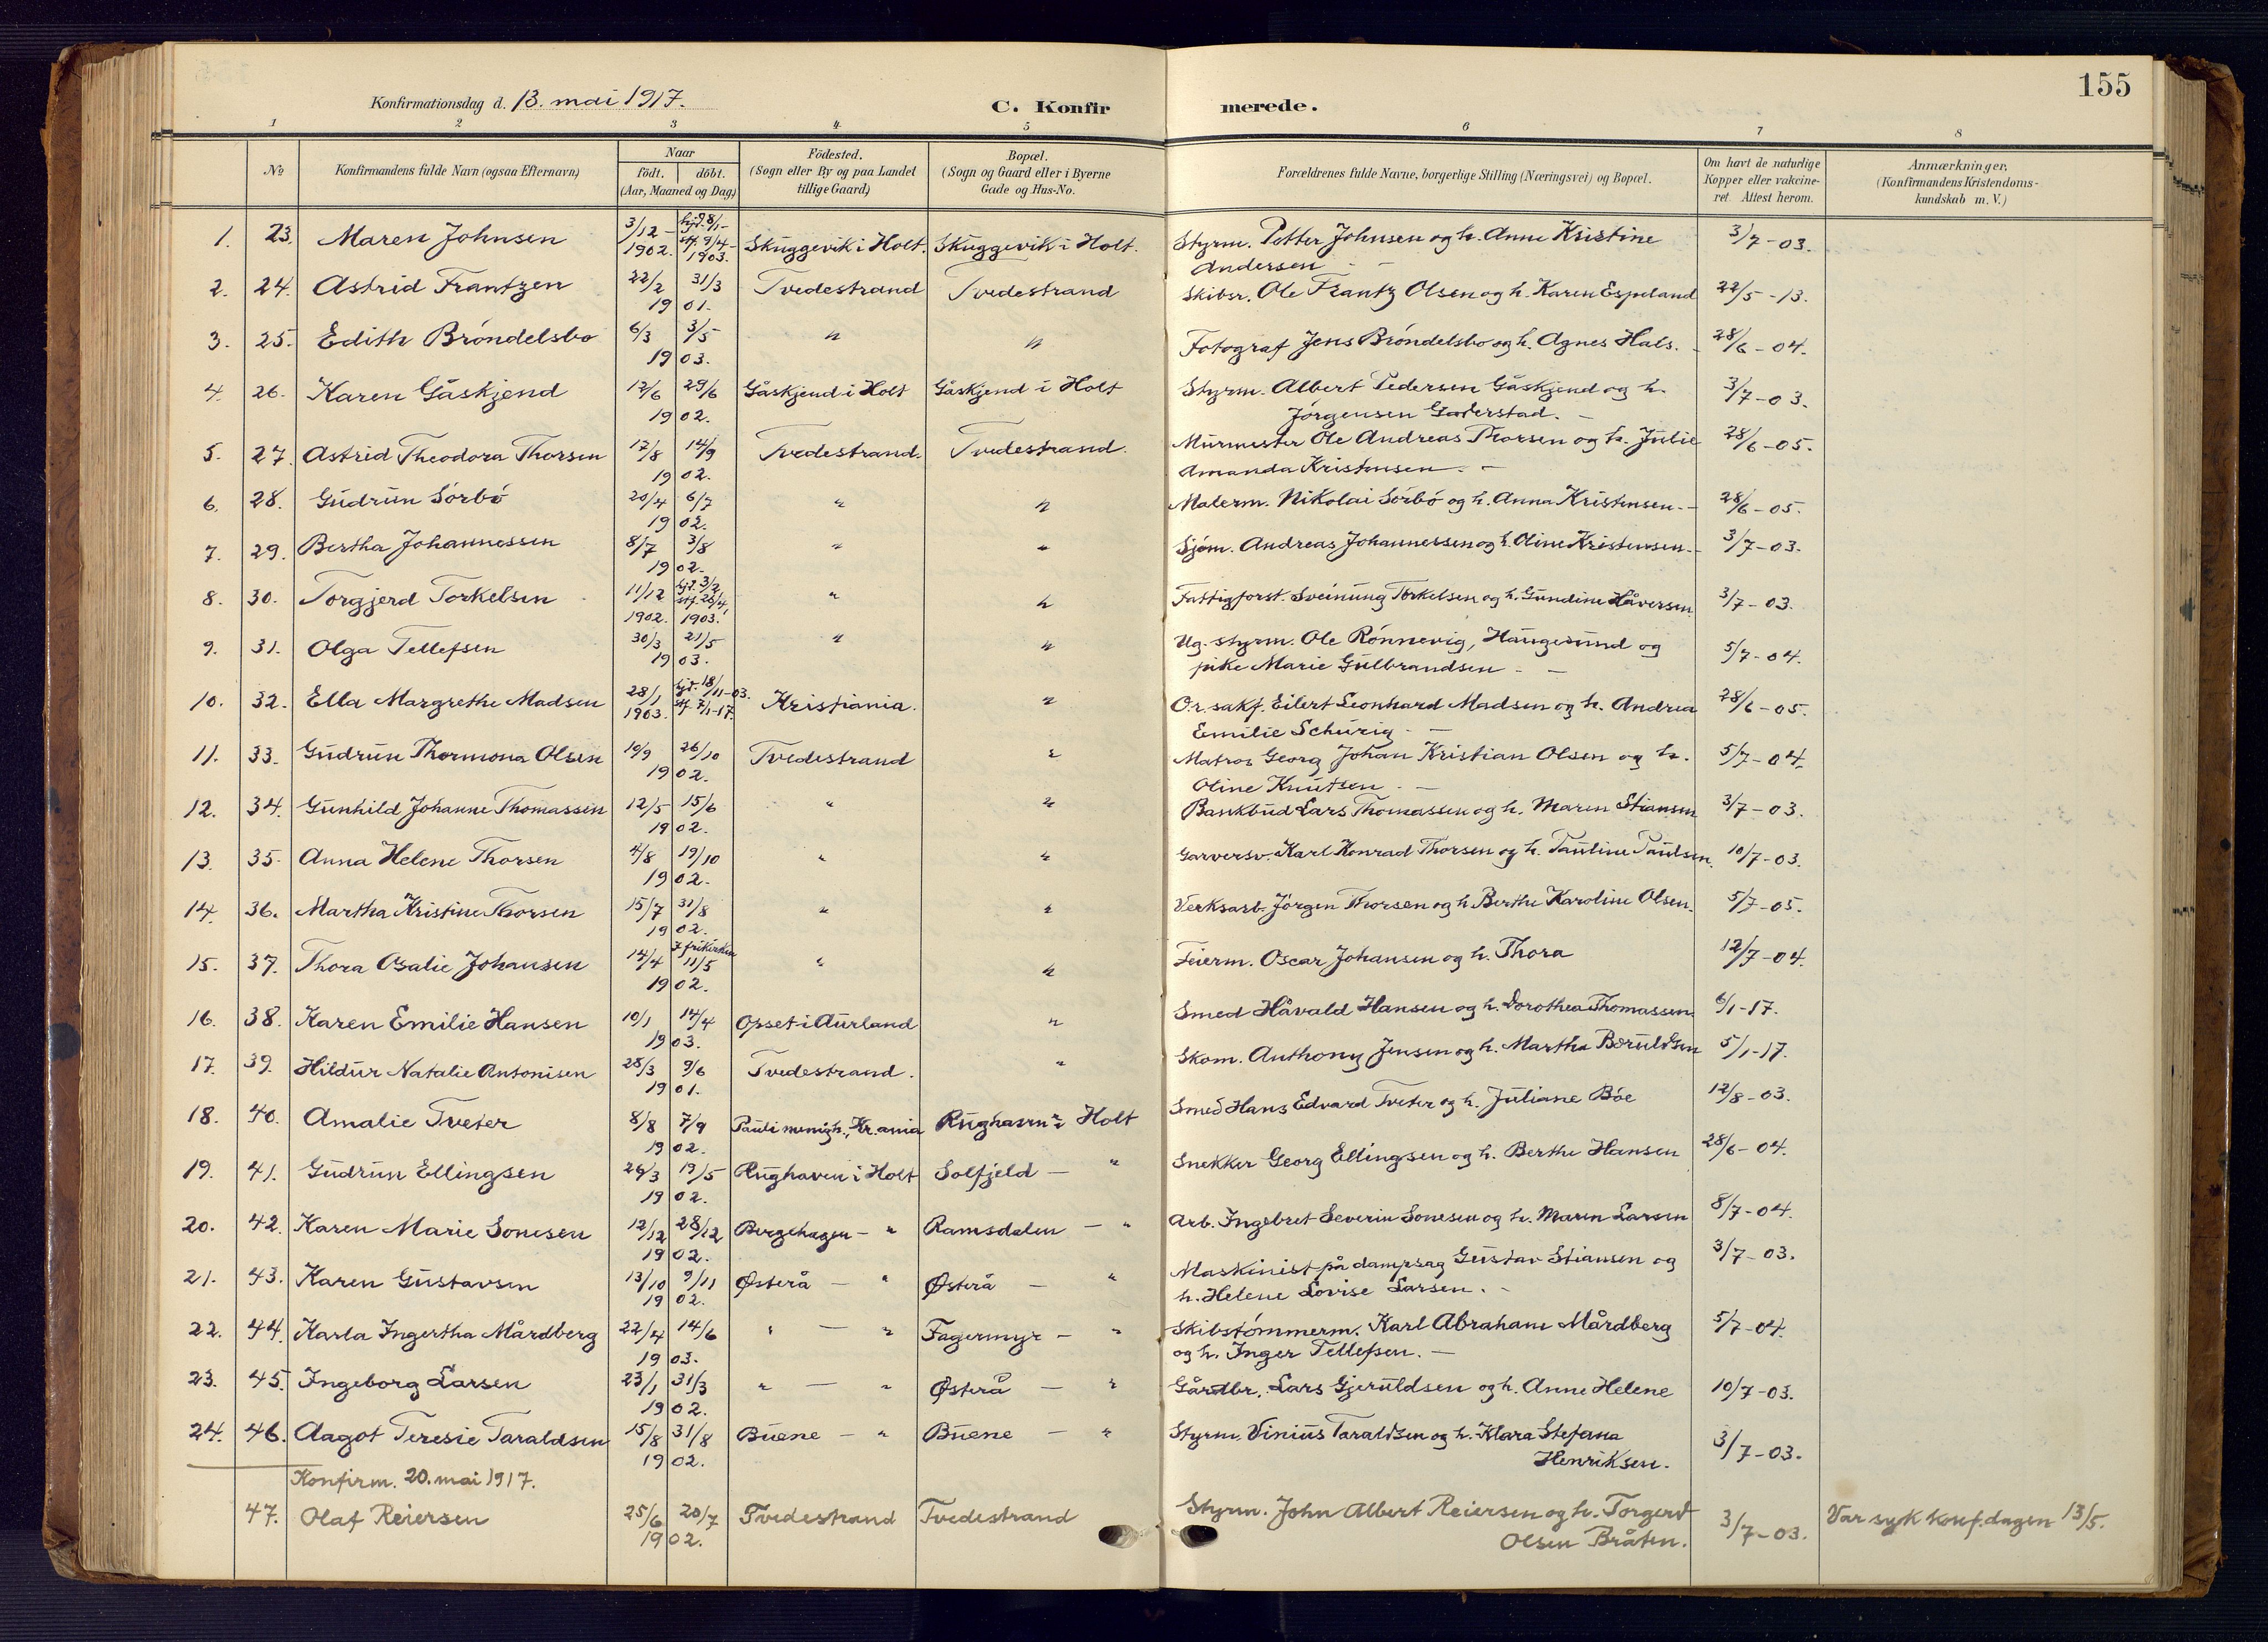 155
Konfirmationsdag d. 13. mai 1917. C. Konfir merede.
1 2 3 4 5 6 7 8
№ Konfirmandens fulde Navn (ogsaa Efternavn) Naar født. døbt. (Aar, Maaned og Dag) Fødested. (Sogn eller By og paa Landet tillige Gaard) Bopæl. (Sogn og Gaard eller i Byerne Gade og Hus-No. Forældrenes fulde Navne, borgerlige Stilling (Næringsvei) og Bopæl. Om havt de naturlige Kopper eller vakcineret. Attest herom. Anmærkninger, (Konfirmandens Kristendomskundskab m. V.)
1. 23. Maren Johnsen 3/12 - 1902. hjd. 8/1 - stf. 9/4 - 1903. Skuggevik i Holt. Skuggevik i Holt. Styrm. Petter Johnsen og h. Anne Kristine 3/7 - 03.
Andersen -
2. 24. Astrid Frantzen 22/2 31/3 1901. Tvedestrand Tvedestrand Skibsr. Ole Frantz Olsen og h. Karen Espeland 22/5 - 13.
3. 25. Edith Brøndelsbo 6/3 3/5 1903. " " Fotograf Jens Brøndelsbo og h. Agnes Hals. - 28/6 - 04.
4. 26. Karen Gåskjend 12/6 29/6 1902. Gåskjend i Holt Gåskjend i Holt Styrm. Albert Pedersen Gåskjend og h. 3/7 - 03.
Jørgensen -
5. 27. Astrid Theodora Thorsen 17/8 14/9 1902. Tvedestrand. Tvedestrand. Murmester Ole Andreas Thorsen og h. Julie 28/6 - 05.
Amanda Kristensen. -
6. 28. Gudrun Sørbø 20/4 6/7 1902. " " Malerm. Nikolai Sørbø og h. Anna Kristensen. - 28/6 - 05.
7. 29. Bertha Johannessen 8/7 3/8 1902. " " Sjøm. Andreas Johannessen og h. Oline Kristensen. - 3/7 - 03.
8. 30. Torgjerd Torkelsen 11/12 1902. hjd. 3/2, stf. 26/4, 1903. " " Fattigforst. Sveinung Torkelsen og h. Gundine Håversen 3/7 - 03.
9. 31. Olga Tellefsen 30/3 21/5 1903. " " Ug. styrm. Ole Rønnevig, Haugesund og 5/7 - 04.
pike Marie Gulbrandsen - -
10. 32. Ella Margrethe Madsen 28/1 1903. hjd. 18/11 - 03. stf. 7/1 - 17. Kristiania. " O.r. sakf. Eilert Leonhard Madsen og h. Andrea 28/6 - 05.
Emilie Schurig - -
11. 33. Gudrun Thormona Olsen 10/9 26/10 1902. Tvedestrand " Matros Georg Johan Kristian Olsen og h. 5/7 - 04.
Oline Knutsen - -
12. 34. Gunhild Johanne Thomassen 12/5 15/6 1902. " " Bankbud Lars Thomassen og h. Maren Stiansen 3/7 - 03.
13. 35. Anna Helene Thorsen 4/8 19/10 1902. " " Garversv. Karl Konrad Thorsen og h. Pauline Paulsen. 10/7 - 03.
14. 36. Martha Kristine Thorsen 15/7 31/8 1902. " " Verksarb. Jørgen Thorsen og h. Berthe Karoline Olsen. 5/7 - 05.
15. 37. Thora Osalie Johansen 14/4 I frikirken 11/5 1902. " " Feierm. Oscar Johansen og h. Thora 12/7 - 04.
16. 38. Karen Emilie Hansen 10/1 14/4 1903. Opset i Aurland " Smed Håvald Hansen og h. Dorothea Thomassen 6/1 - 17.
17. 39. Hildur Natalie Antonisen 28/3 9/6 1901. Tvedestrand. " Skom. Anthony Jensen og h. Martha Beruldsen 5/1 - 17.
18. 40. Amalie Tveter 8/8 7/9 1902. Pauli menigh., Kr.ania Rughavn i Holt Smed Hans Edvard Tveter og h. Juliane Bøe 12/8 - 03.
19. 41. Gudrun Ellingsen 26/3 19/5 1902. Rughaven i Holt Solfjeld - " Snekker Georg Ellingsen og h. Berthe Hansen 28/6 - 04.
20. 42. Karen Marie Sonesen 12/12 28/12 1902. Bergehagen - " Ramsdalen - " Arb. Ingebret Severin Sonesen og h. Maren Larsen 8/7 - 04.
21. 43. Karen Gustavsen 13/10 9/11 1902. Østerå - " Østerå - " Maskinist på dampsag Gustav Stiansen og 3/7 - 03.
h. Helene Lovise Larsen. -
22. 44. Karla Ingertha Mårdberg 22/4 14/6 1903. " - " Fagermyr - " Skibstømmerm. Karl Abraham Mårdberg 5/7 - 04.
og h. Inger Tellefsen. -
23. 45. Ingeborg Larsen 23/1 31/3 1902. " - " Østerå - " Gårdbr. Lars Gjeruldsen og h. Anne Helene 10/7 - 03.
24. 46. Aagot Teresie Taraldsen 15/8 31/8 1902. Buene - " Buene - " Styrm. Vinius Taraldsen og h. Klara Stefana 3/7 - 03.
Henriksen.
Konfirm. 20. mai 1917.
47. Olaf Reiersen 25/6 20/7 1902. Tvedestrand Tvedestrand Styrm. John Albert Reiersen og h. Torgerd 3/7 - 03. Var syk konf.dagen 13/5.
Olsen Bråten.